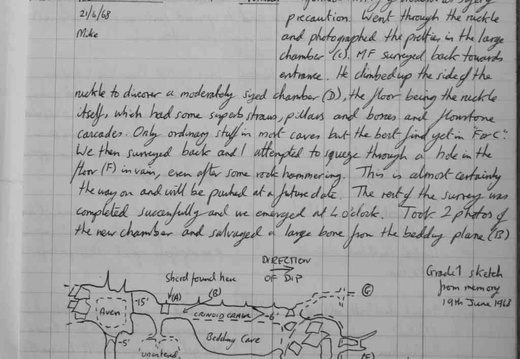 precaution. Went through the ruckle
21/6/68
and photographed the pretties in the large
Mike
chamber (C). MF surveyed back towards
entrance. He climbed up the side of the
ruckle to discover a moderately sized chamber (D), the floor being the ruckle
itself, which had some superb straws, pillars and bones and flowstone
cascades. Only ordinary stuff in most caves but the best find yet in F or C".
We then surveyed back and I attempted to squeeze through a hole in the
floor (F) in vain, even after some rock hammering. This is almost certainly
the way on and will be pushed at a future date. The rest of the survey was
completed succesfully and we emerged at 4 o'clock. Took 2 photos of
the new chamber and salvaged a large bone from the bedding plane (B)
DIRECTION
OF DIP
Grade 1 sketch
from memory
19th June 1968
Sherd found here
(A)
(B)
(G)
Aven
-15'
-6'
-5'
Bedding Cave
(E)